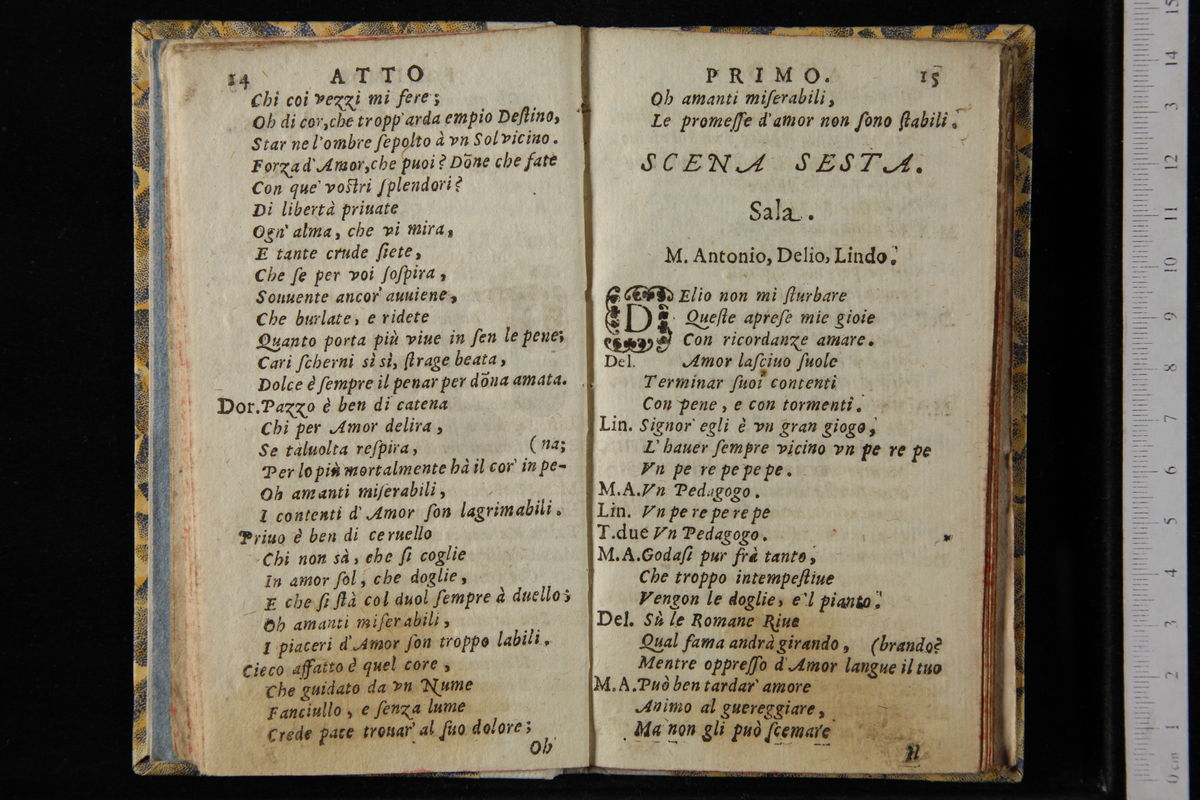 14 ATTO
Chi coi vezzi mi fere;
Oh di cor, che tropp'arda empio Deſtino,
Star ne l'ombre ſepolto à vn Sol vicino.
Forza d'Amor, che puoi? Dõne che fate
Con que' voſtri ſplendori?
Di libertà priuate
Ogn'alma, che vi mira,
E tante crude ſiete,
Che ſe per voi ſoſpira,
Souuente ancor'auuiene,
Che burlate, e ridete
Quanto porta più viue in ſen le pene;
Cari ſcherni sì sì, ſtrage beata,
Dolce è ſempre il penar per dõna amata.
Dor. Pazzo è ben di catena
Chi per Amor delira,
Se taluolta reſpira, (na;
Per lo più mortalmente hà il cor' in pe-
Oh amanti miſerabili,
I contenti d'Amor ſon lagrimabili.
Priuo è ben di ceruello
Chi non sà, che ſi coglie
In amor ſol, che doglie,
E che ſi ſtà col duol ſempre à duello;
Oh amanti miſerabili,
I piaceri d'Amor ſon troppo labili.
Cieco affatto è quel core,
Che guidato da vn Nume
Fanciullo, e ſenza lume
Crede pace trouar' al ſuo dolore;
Oh
PRIMO. 15
Oh amanti miſerabili,
Le promeſſe d'amor non ſono ſtabili.
SCENA SESTA.
Sala.
M. Antonio, Delio, Lindo.
DElio non mi ſturbare
Queſte apreſe mie gioie
Con ricordanze amare.
Del. Amor laſciuo ſuole
Terminar ſuoi contenti
Con pene, e con tormenti.
Lin. Signor' egli è vn gran giogo,
L'hauer ſempre vicino vn pe re pe
Vn pe re pe pe pe.
M.A. Vn Pedagogo.
Lin. Vn pe re pe re pe
T.due Vn Pedagogo.
M.A. Godaſi pur frà tanto,
Che troppo intempeſtiue
Vengon le doglie, e'l pianto.
Del. Sù le Romane Riue
Qual fama andrà girando, (brando?
Mentre oppreſſo d'Amor langue il tuo
M.A. Può ben tardar' amore
Animo al guereggiare,
Ma non gli può ſcemare
Il